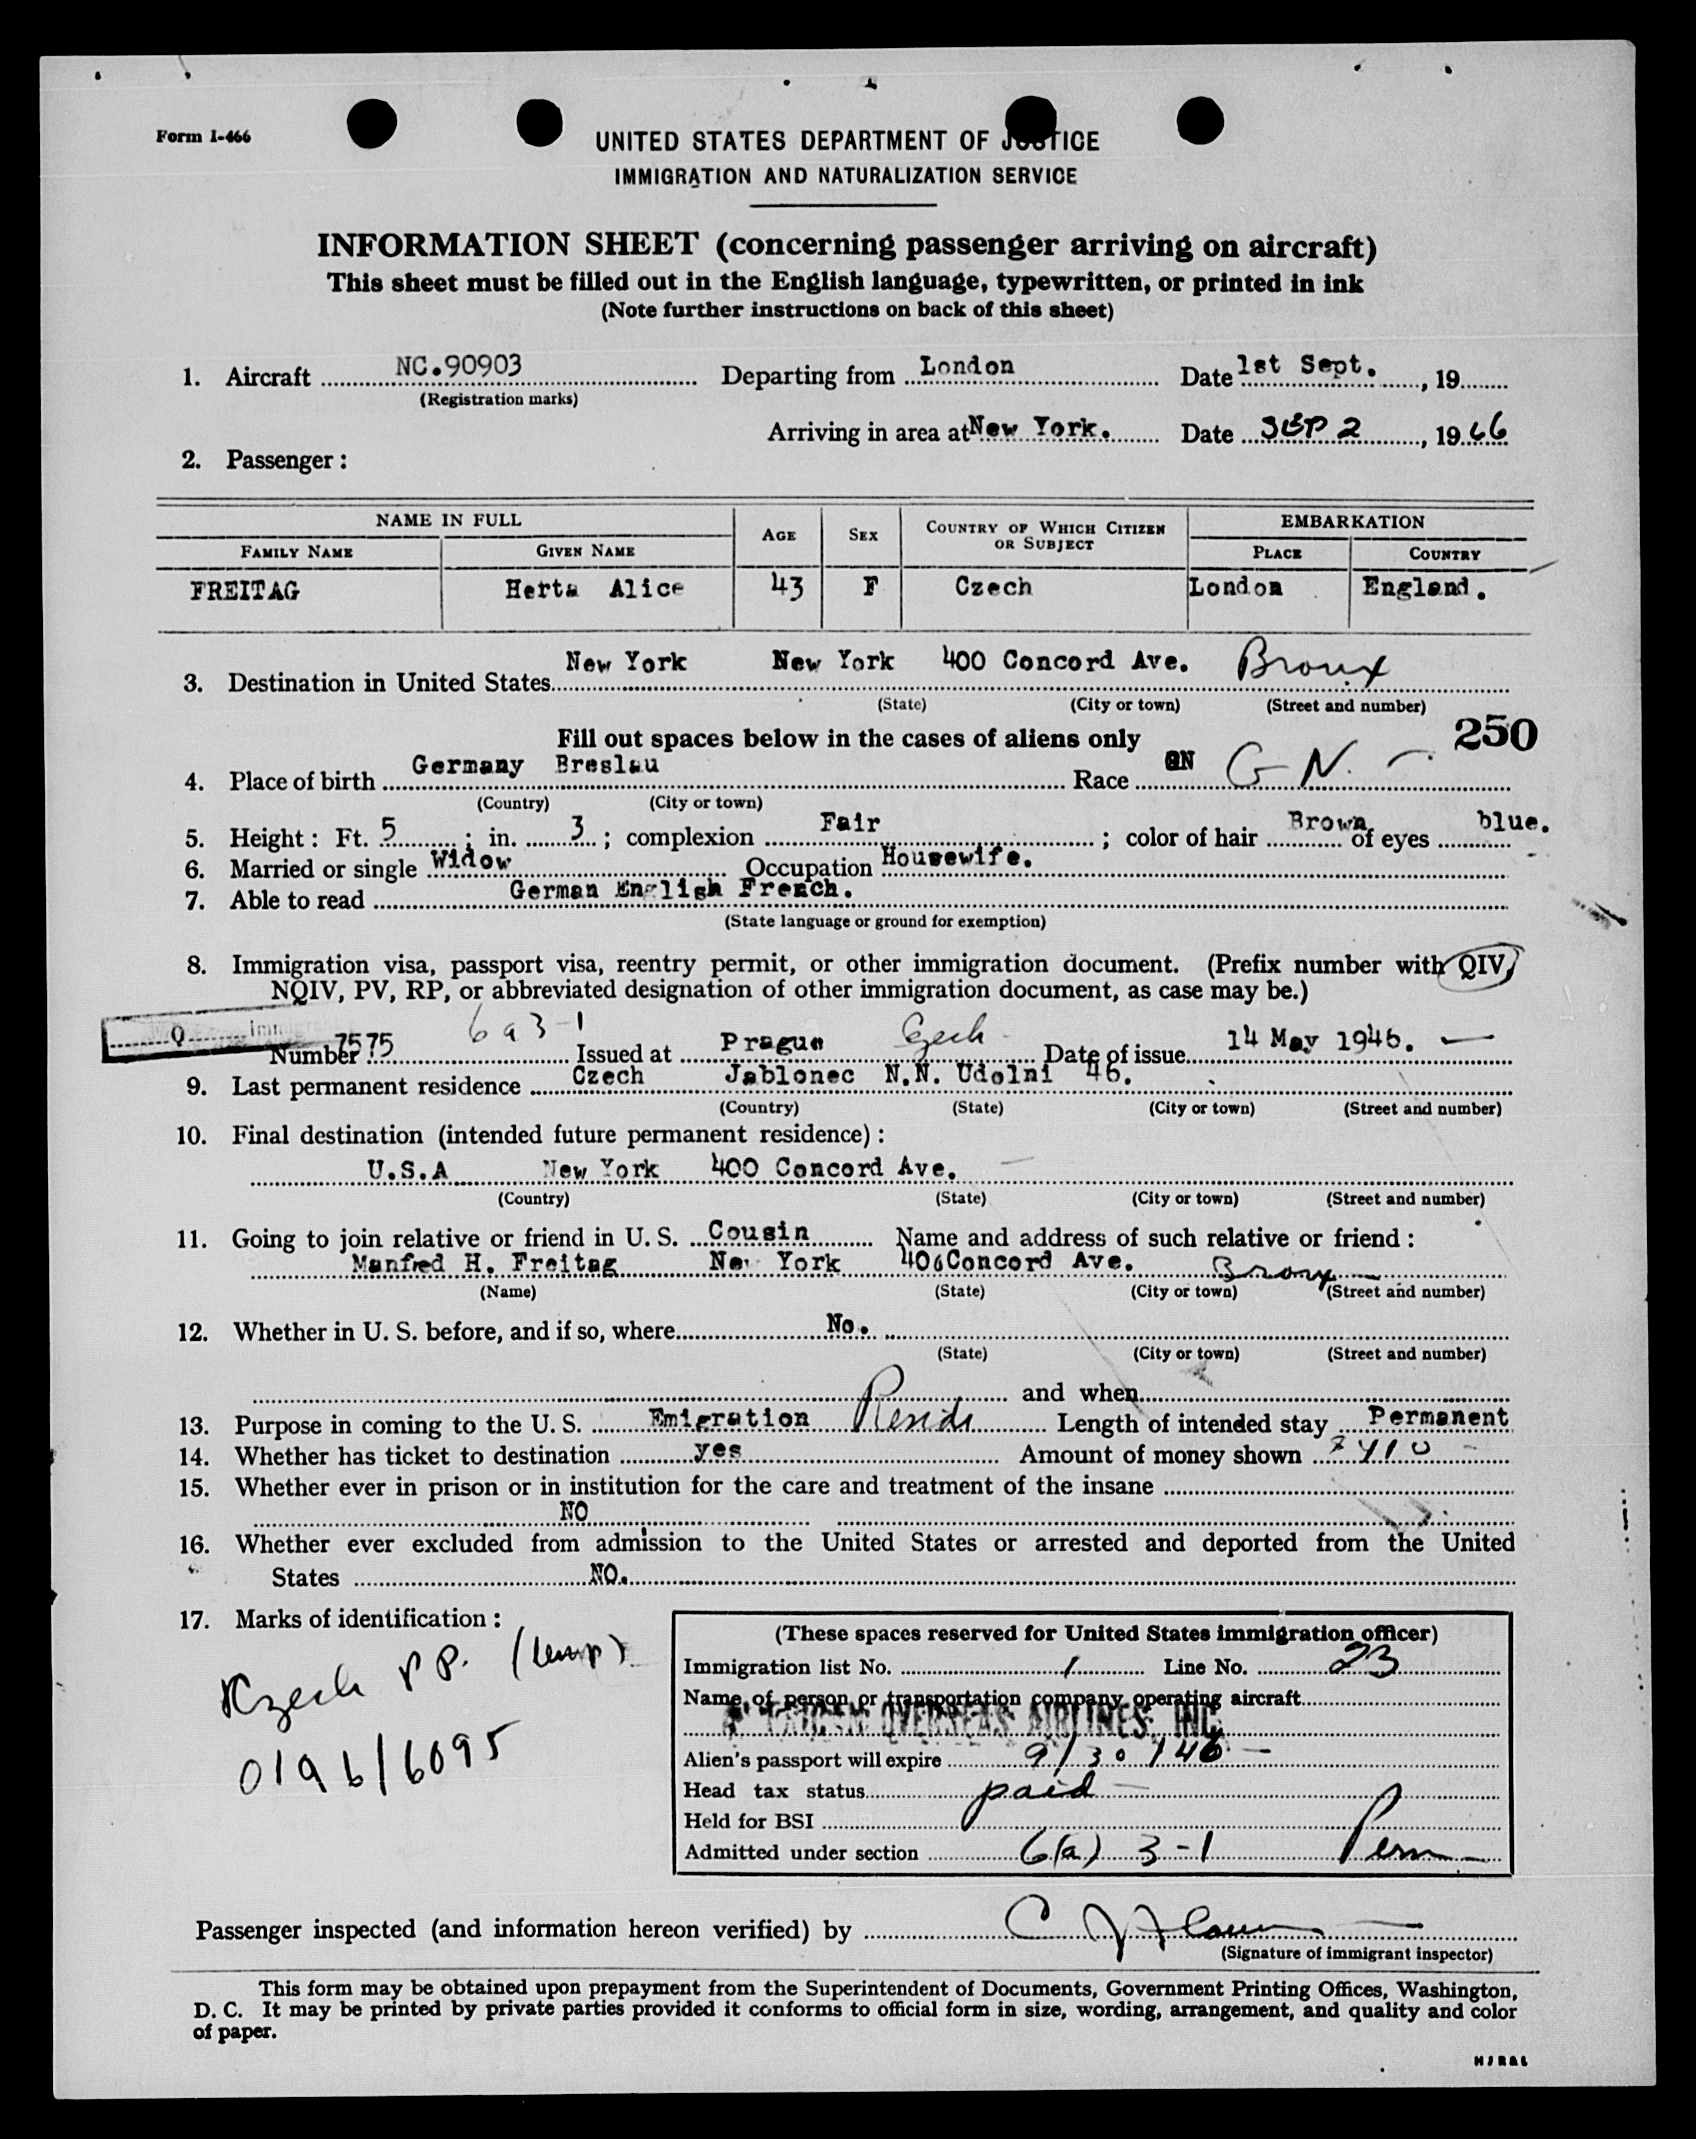 Form I-466
UNITED STATES DEPARTMENT OF JUSTICE
IMMIGRATION AND NATURALIZATION SERVICE
INFORMATION SHEET (concerning passenger arriving on aircraft)
This sheet must be filled out in the English language, typewritten, or printed in ink
(Note further instructions on back of this sheet)
1. Aircraft NC.90903 Departing from London Date 1st Sept. , 19
(Registration marks)
Arriving in area at New York. Date SEP 2 , 1946
2. Passenger :
NAME IN FULL AGE SEX COUNTRY OF WHICH CITIZEN OR SUBJECT EMBARKATION
FAMILY NAME GIVEN NAME PLACE COUNTRY
FREITAG Herta Alice 43 F Czech London England.
3. Destination in United States New York New York 400 Concord Ave. Bronx
(State) (City or town) (Street and number)
Fill out spaces below in the cases of aliens only 250
4. Place of birth Germany Breslau Race GN G N.
(Country) (City or town)
5. Height : Ft. 5 ; in. 3 ; complexion Fair ; color of hair Brown of eyes blue.
6. Married or single Widow Occupation Housewife.
7. Able to read German English French.
(State language or ground for exemption)
8. Immigration visa, passport visa, reentry permit, or other immigration document. (Prefix number with QIV,
NQIV, PV, RP, or abbreviated designation of other immigration document, as case may be.)
Q
Number 7575 6a3-1 Issued at Prague Czech Date of issue 14 May 1946.
9. Last permanent residence Czech Jablonec N.N. Udolni 46.
(Country) (State) (City or town) (Street and number)
10. Final destination (intended future permanent residence) :
U.S.A New York 400 Concord Ave.
(Country) (State) (City or town) (Street and number)
11. Going to join relative or friend in U. S. Cousin Name and address of such relative or friend :
Manfred H. Freitag New York 400 Concord Ave. Bronx
(Name) (State) (City or town) (Street and number)
12. Whether in U. S. before, and if so, where No.
(State) (City or town) (Street and number)
and when
13. Purpose in coming to the U. S. Emigration Reside Length of intended stay Permanent
14. Whether has ticket to destination yes Amount of money shown
15. Whether ever in prison or in institution for the care and treatment of the insane
NO
16. Whether ever excluded from admission to the United States or arrested and deported from the United
States NO.
17. Marks of identification :
Kzech PP. (temp)
0196/6095
(These spaces reserved for United States immigration officer)
Immigration list No. 1 Line No. 23
Name of person or transportation company operating aircraft
OVERSEAS AIRLINES, INC.
Alien's passport will expire 9/30/46
Head tax status paid
Held for BSI
Admitted under section 6(a) 3-1 Perm
Passenger inspected (and information hereon verified) by
(Signature of immigrant inspector)
This form may be obtained upon prepayment from the Superintendent of Documents, Government Printing Offices, Washington,
D. C. It may be printed by private parties provided it conforms to official form in size, wording, arrangement, and quality and color
of paper.